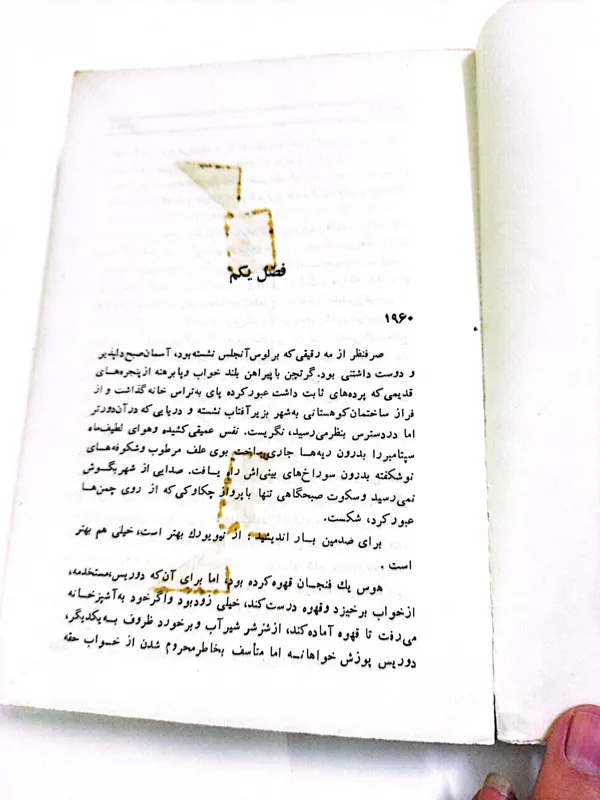 فصل یکم
۱۹۶۰
صرفنظر از مه رقیقی که بر لوس آنجلس نشسته بود، آسمان صبح دلپذیر
و دوست داشتنی بود. گرتچن با پیراهن بلند خواب و پا برهنه از پنجره‌های
قدیمی که پرده‌های ثابت داشت عبور کرده پای به تراس خانه گذاشت و از
فراز ساختمان کوهستانی به شهر بزیر آفتاب نشسته و دریایی که در آن دورتر
اما در دسترس بنظر می‌رسید، نگریست. نفس عمیقی کشیده و هوای لطیف ماه
سپتامبر را بدرون ریه‌ها جاری ساخت بوی علف مرطوب و شکوفه‌های
نو شکفته بدرون سوراخ‌های بینی‌اش راه یافت. صدایی از شهر بگوش
نمی‌رسید و سکوت صبحگاهی تنها با پرواز چکاوکی که از روی چمن‌ها
عبور کرد، شکست.
برای صدمین بار اندیشید: از نیویورك بهتر است، خیلی هم بهتر
است .
هوس یك فنجان قهوه کرده بود، اما برای آن که دوریس، مستخدمه،
از خواب برخیزد و قهوه درست کند، خیلی زود بود و اگر خود به آشپزخانه
می‌رفت تا قهوه آماده کند، از شرشر شیر آب و برخورد ظروف به یکدیگر،
دوریس پوزش خواهانه اما متأسف بخاطر محروم شدن از خواب حقه